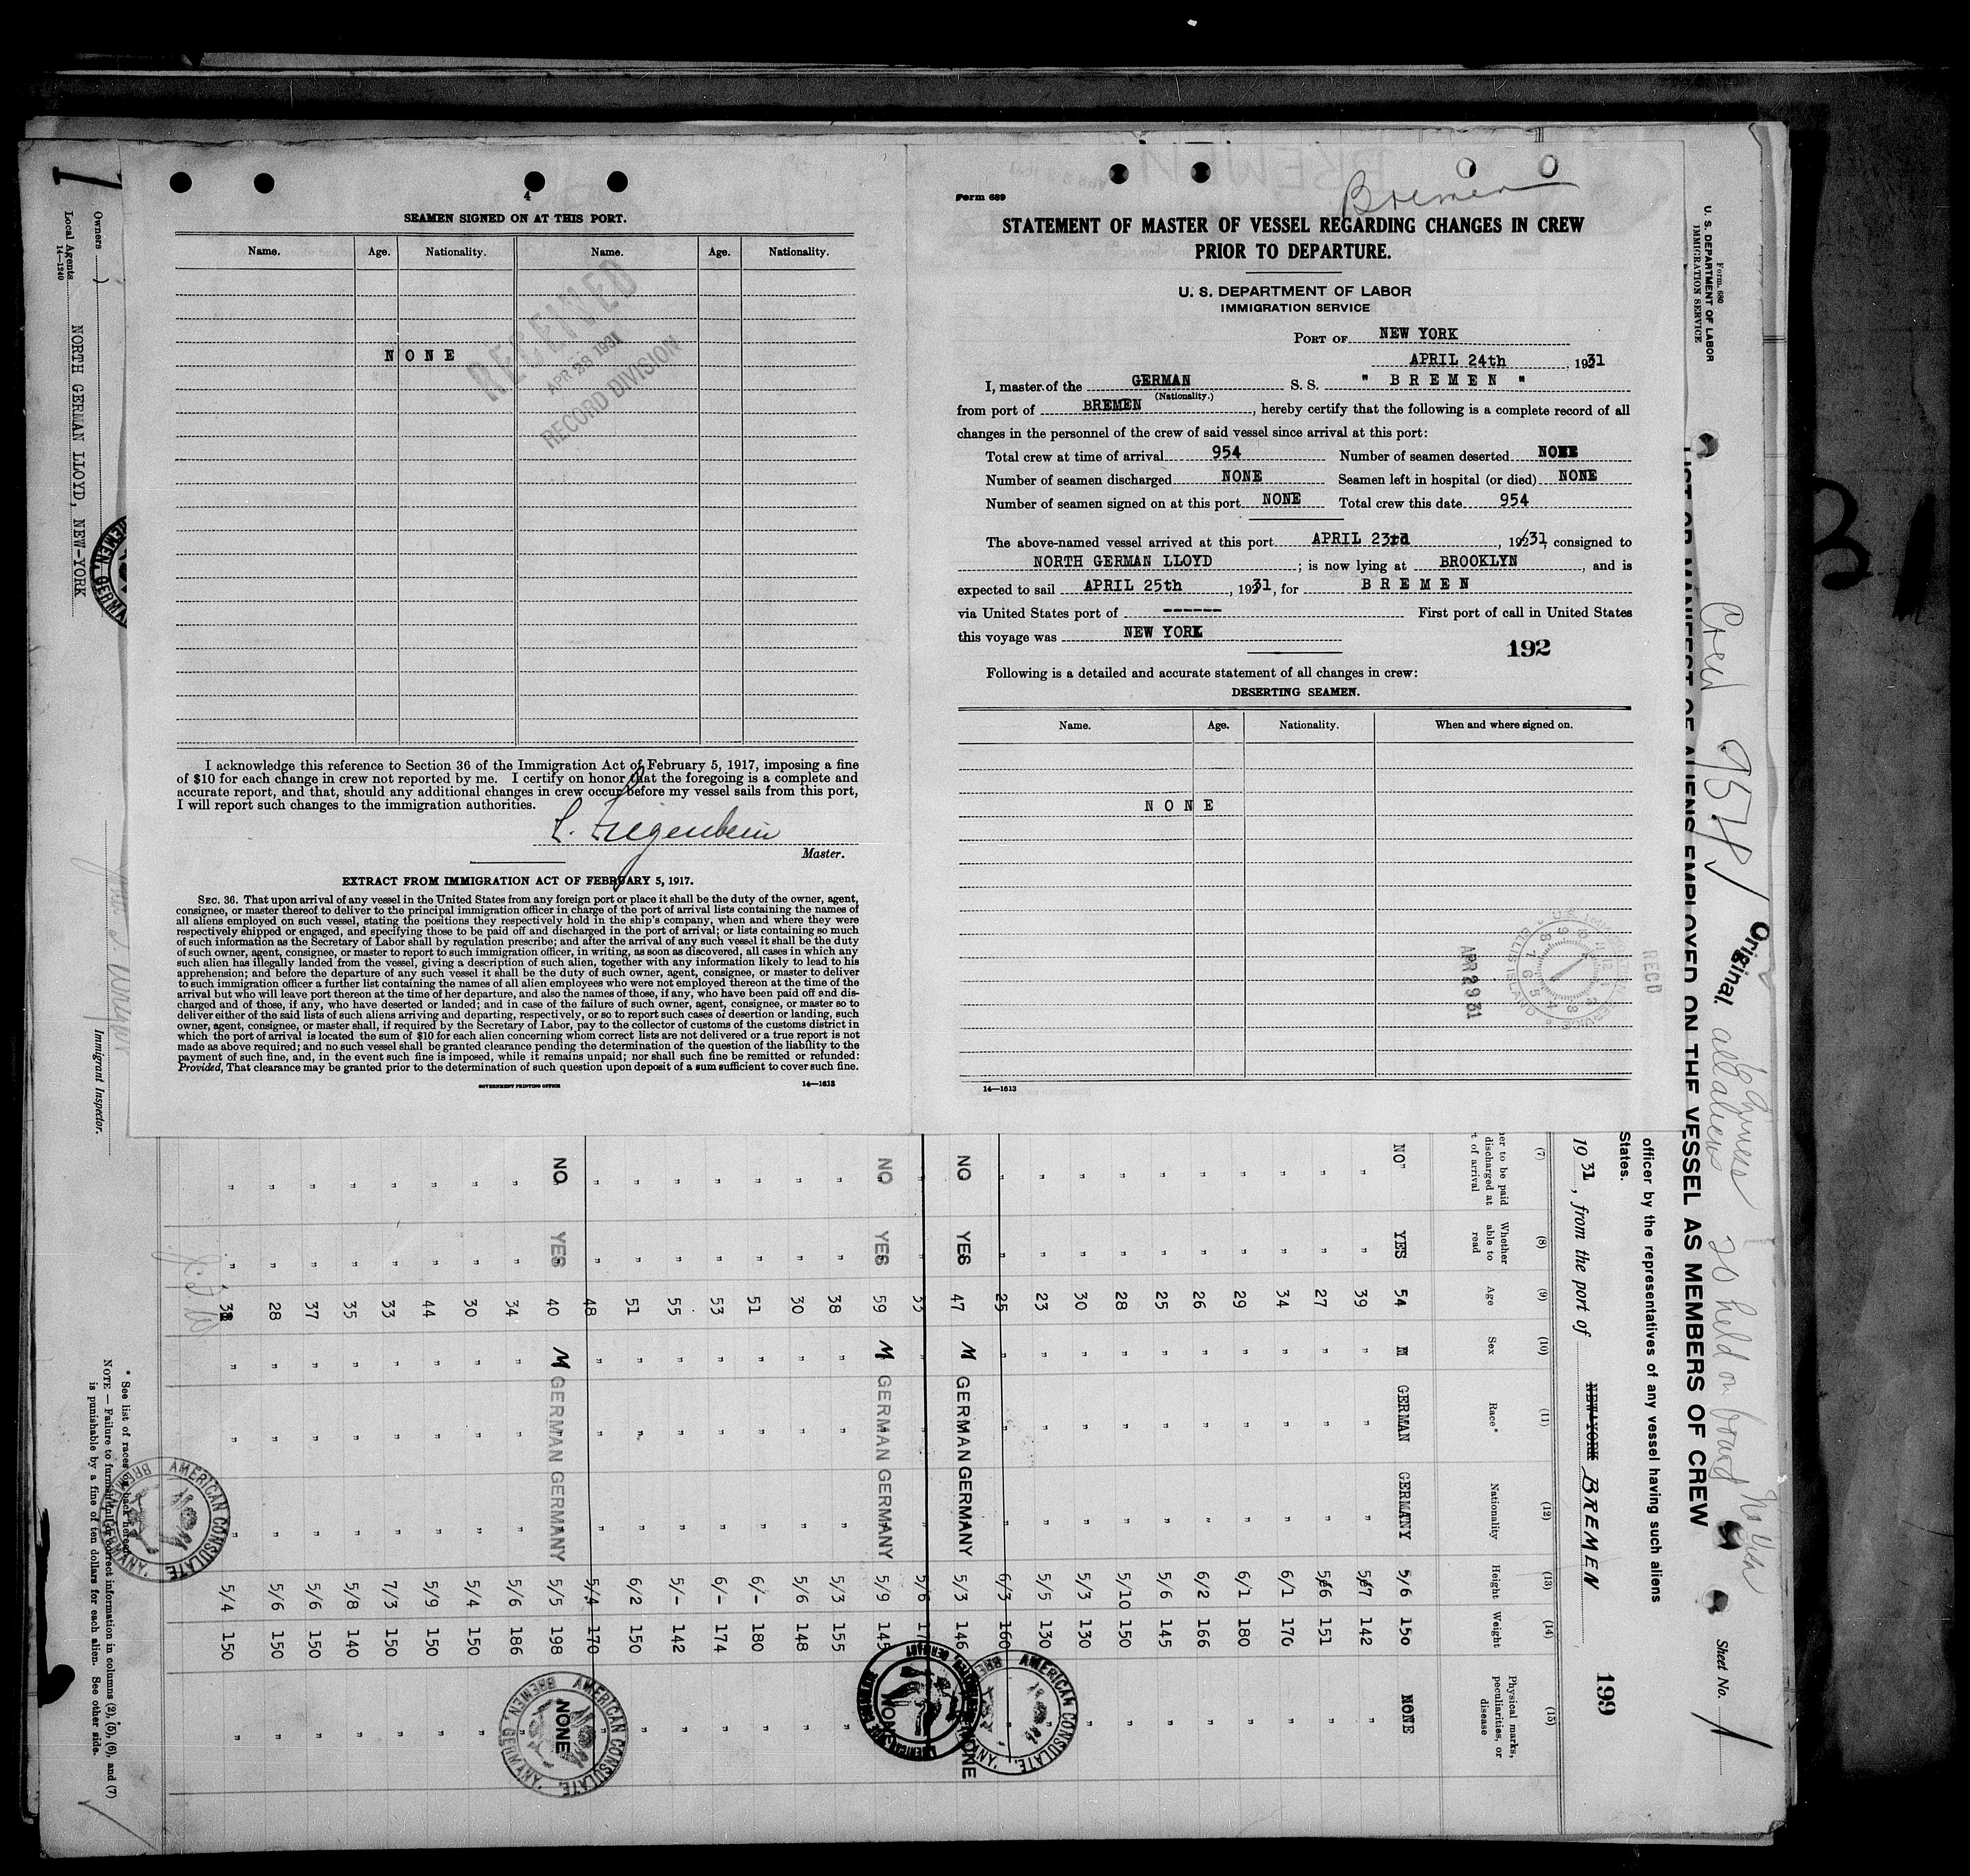 4
SEAMEN SIGNED ON AT THIS PORT.
Name. Age. Nationality. Name. Age. Nationality.
N O N E
RECEIVED
APR 28 1931
RECORD DIVISION
I acknowledge this reference to Section 36 of the Immigration Act of February 5, 1917, imposing a fine
of $10 for each change in crew not reported by me. I certify on honor that the foregoing is a complete and
accurate report, and that, should any additional changes in crew occur before my vessel sails from this port,
I will report such changes to the immigration authorities.
Master.
EXTRACT FROM IMMIGRATION ACT OF FEBRUARY 5, 1917.
SEC. 36. That upon arrival of any vessel in the United States from any foreign port or place it shall be the duty of the owner, agent,
consignee, or master thereof to deliver to the principal immigration officer in charge of the port of arrival lists containing the names of
all aliens employed on such vessel, stating the positions they respectively hold in the ship's company, when and where they were
respectively shipped or engaged, and specifying those to be paid off and discharged in the port of arrival; or lists containing so much
of such information as the Secretary of Labor shall by regulation prescribe; and after the arrival of any such vessel it shall be the duty
of such owner, agent, consignee, or master to report to such immigration officer, in writing, as soon as discovered, all cases in which any
such alien has illegally landed from the vessel, giving a description of such alien, together with any information likely to lead to his
apprehension; and before the departure of any such vessel it shall be the duty of such owner, agent, consignee, or master to deliver
to such immigration officer a further list containing the names of all alien employees who were not employed thereon at the time of the
arrival but who will leave port thereon at the time of her departure, and also the names of those, if any, who have been paid off and dis-
charged and of those, if any, who have deserted or landed; and in case of the failure of such owner, agent, consignee, or master so to
deliver either of the said lists of such aliens arriving and departing, respectively, or so to report such cases of desertion or landing, such
owner, agent, consignee, or master shall, if required by the Secretary of Labor, pay to the collector of customs of the customs district in
which the port of arrival is located the sum of $10 for each alien concerning whom correct lists are not delivered or a true report is not
made as above required; and no such vessel shall be granted clearance pending the determination of the question of the liability to the
payment of such fine, and, in the event such fine is imposed, while it remains unpaid; nor shall such fine be remitted or refunded:
Provided, That clearance may be granted prior to the determination of such question upon deposit of a sum sufficient to cover such fine.
GOVERNMENT PRINTING OFFICE 14—1613
Form 689
Bremen
STATEMENT OF MASTER OF VESSEL REGARDING CHANGES IN CREW
PRIOR TO DEPARTURE.
U. S. DEPARTMENT OF LABOR
IMMIGRATION SERVICE
PORT OF NEW YORK
APRIL 24th, 1931
I, master of the GERMAN S. S. " B R E M E N "
(Nationality.)
from port of BREMEN, hereby certify that the following is a complete record of all
changes in the personnel of the crew of said vessel since arrival at this port:
Total crew at time of arrival 954 Number of seamen deserted NONE
Number of seamen discharged NONE Seamen left in hospital (or died) NONE
Number of seamen signed on at this port NONE Total crew this date 954
The above-named vessel arrived at this port APRIL 23rd, 1931, consigned to
NORTH GERMAN LLOYD; is now lying at BROOKLYN, and is
expected to sail APRIL 25th, 1931, for B R E M E N
via United States port of ------ First port of call in United States
this voyage was NEW YORK
192
Following is a detailed and accurate statement of all changes in crew:
DESERTING SEAMEN.
Name. Age. Nationality. When and where signed on.
N O N E
APR 29 31
REC'D
14—1613
Form 680
U. S. DEPARTMENT OF LABOR
IMMIGRATION SERVICE
ALIENS EMPLOYED ON THE VESSEL AS MEMBERS OF CREW
Crew 954
Original
all aliens
20 held on board
No Visa
Sheet No. 1
officer by the representatives of any vessel having such aliens
States.
1931, from the port of NEW YORK BREMEN
199
(7) (8) (9) (10) (11) (12) (13) (14) (15)
Whether able to read Age Sex Race* Nationality Height Weight Physical marks, peculiarities, or disease
NO" YES 54 M GERMAN GERMANY 5/6 150 NONE
" " 39 " " " 5/7 142 "
" " 27 " " " 5/6 151 "
" " 34 " " " 6/1 170 "
" " 29 " " " 6/1 180 "
" " 26 " " " 6/2 166 "
" " 25 " " " 5/6 145 "
" " 28 " " " 5/10 150 "
" " 30 " " " 5/3 130 "
" " 23 " " " 5/5 130 "
" " 25 " " " 6/3 160 "
NO YES 47 M GERMAN GERMANY 5/3 146 NONE
" " 33 " " " 5/6
NO YES 59 M GERMAN GERMANY 5/9 145 NONE
" " 38 " " " 5/3 155 "
" " 30 " " " 5/6 148 "
" " 51 " " " 6/- 180 "
" " 53 " " " 6/- 174 "
" " 55 " " " 5/- 142 "
" " 51 " " " 6/2 150 "
" " 48 " " " 5/4 170 "
NO YES 40 M GERMAN GERMANY 5/5 198 NONE
" " 34 " " " 5/6 186 "
" " 30 " " " 5/4 150 "
" " 44 " " " 5/9 150 "
" " 33 " " " 7/3 150 "
" " 35 " " " 5/8 140 "
" " 37 " " " 5/6 150 "
" " 28 " " " 5/6 150 "
" " 38 " " " 5/4 150 "
AMERICAN CONSULATE, BREMEN, GERMANY
AMERICAN CONSULATE, BREMEN, GERMANY
AMERICAN CONSULATE, BREMEN, GERMANY
Owners
Local Agents NORTH GERMAN LLOYD, NEW-YORK
14—1240
Immigrant Inspector.
* See list of races on back hereof.
NOTE.—Failure to furnish full or correct information in columns (2), (5), (6), and (7)
is punishable by a fine of ten dollars for each alien. See other side.